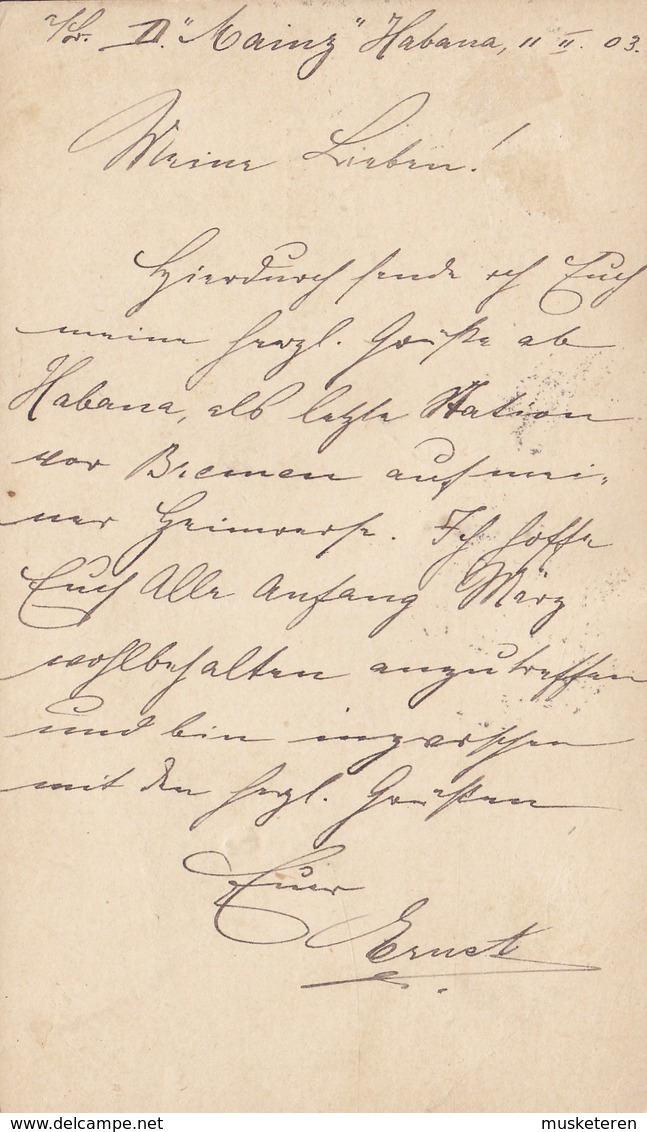 D. "Mainz" Habana, 11 II. 03.
Meine Lieben!
Hierdurch sende ich Euch
meine herzl. Grüße ab
Habana, als letzte Station
vor Bremen auf mei-
ner Heimreise. Ich hoffe
Euch Alle Anfang März
wohlbehalten anzutreffen
und bin inzwischen
mit den herzl. Grüßen
Euer
Ernst
www.delcampe.net
musketeren